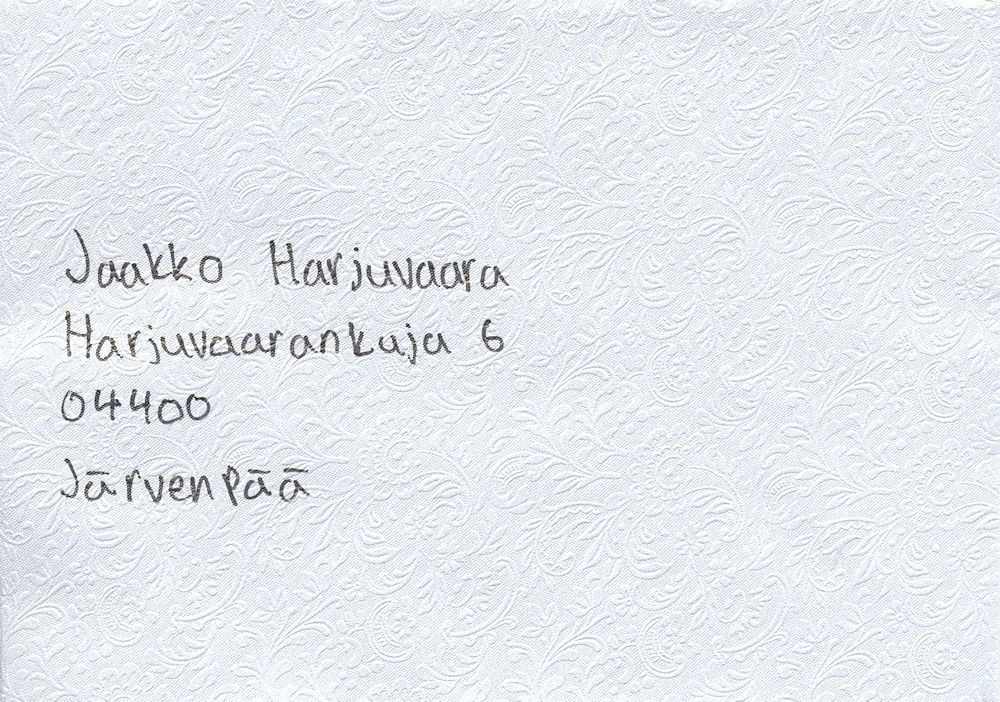 Jaakko Harjuvaara
Harjuvaarankuja 6
04400
Järvenpää